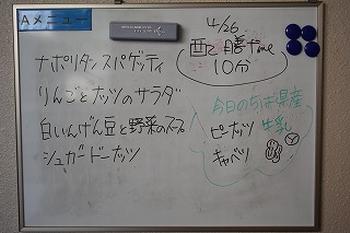 Aメニュー
4/26
配膳time
10分
ナポリタンスパゲッティ
りんごとナッツのサラダ
白いんげん豆と野菜のスープ
シュガードーナッツ
今日のちば県産
ピーナッツ 牛乳
キャベツ